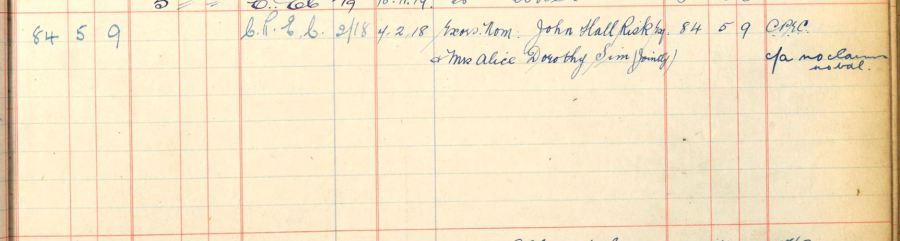 84 5 9 C.P.E.C. 2/18 4.2.18 Exors. Nom. John Hall Risk Esq. 84 5 9 CPEC.
& Mrs Alice Dorothy Sim (Jointly) c/a no claim
no bal.